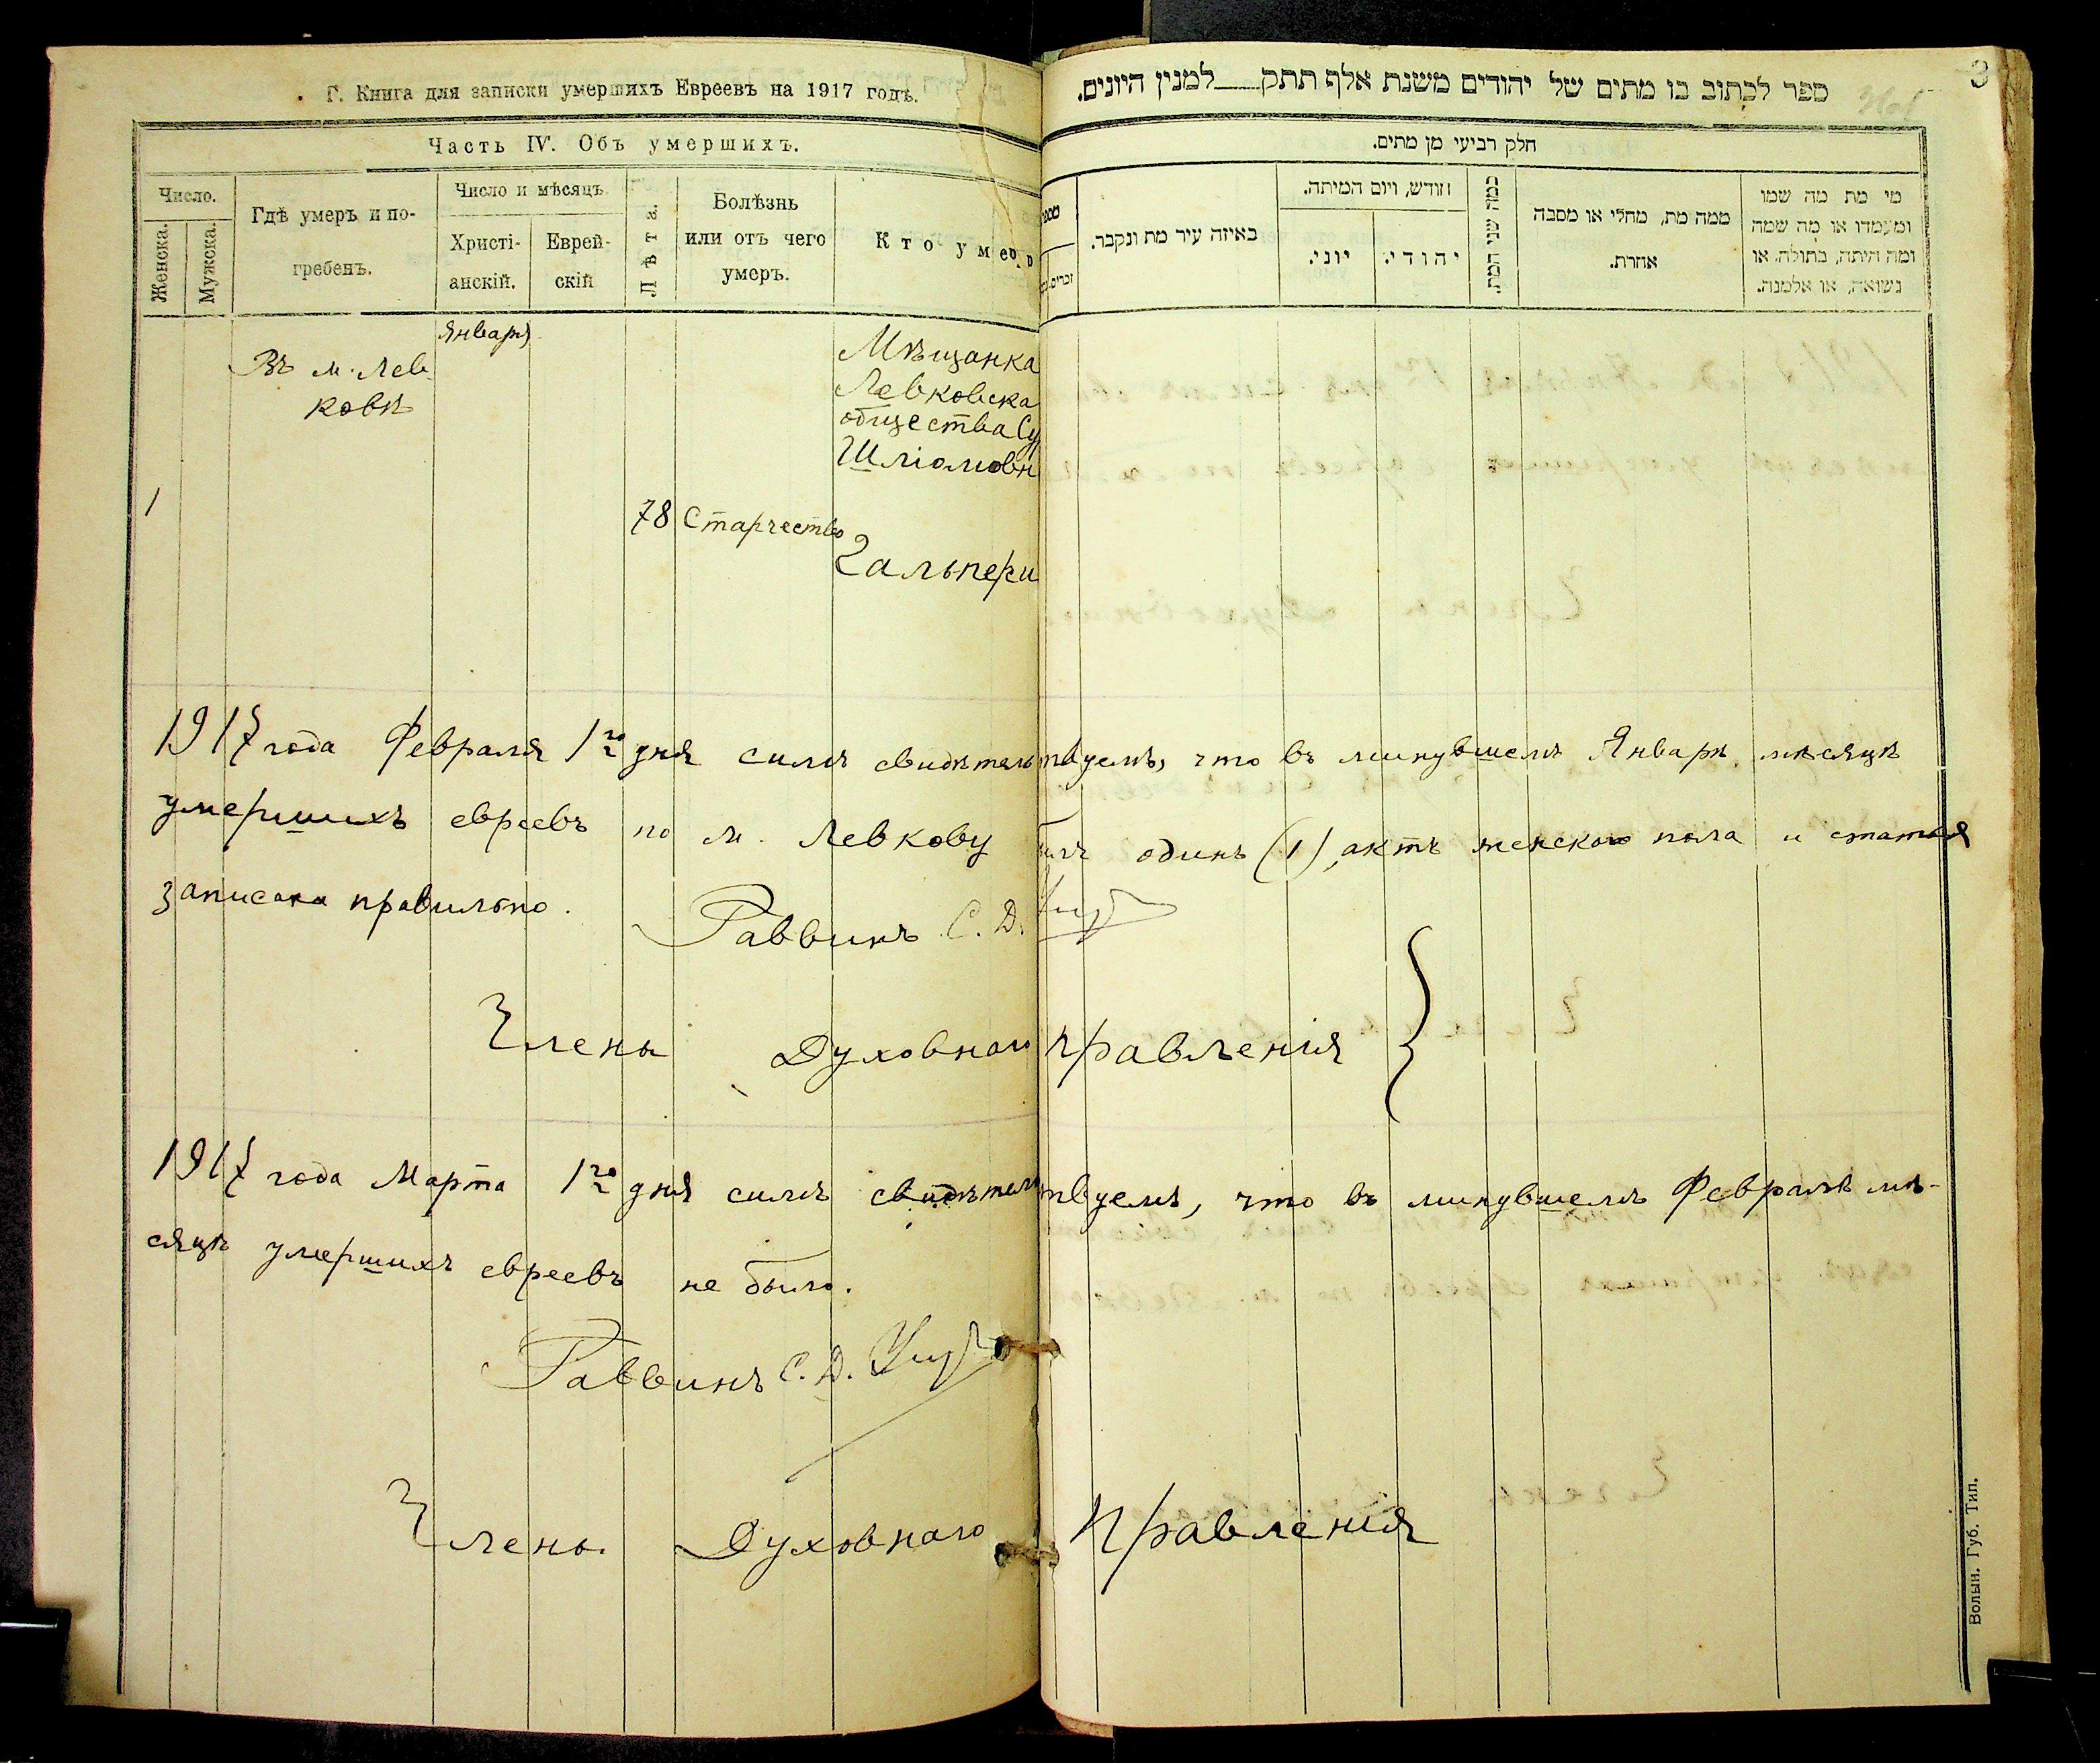 Г. Книга для записки умершихъ Евреевъ на 1917 годъ.
Часть IV. Объ умершихъ.
Число.
Женска.
Мужска.
Гдѣ умеръ и по-
гребенъ.
Число и мѣсяцъ
Христі-
анскій.
Еврей-
скій
Лѣта.
Болѣзнь
или отъ чего
умеръ.
Кто умеръ
Января
Въ м. Лев-
ковѣ
1
78
Старчество
Мѣщанка
Левковска
общества
Шліомовн
Гальпери
ספר לכתוב בו מתים של יהודים משנת אלף תתק___למנין היונים.
3
חלק רביעי מן מתים.
באיזה עיר מת ונקבר.
חודש, ויום המיתה.
יוני.
יהודי.
כמה שני המת.
ממה מת, מחלי או מסבה
אחרת.
מי מת מה שמו
ומעמדו או מה שמה
ומה היתה, בתולה או
נשואה, או אלמנה.
1917 года Февраля 1го дня симъ свидѣтельствуемъ, что въ минувшемъ Январѣ мѣсяцѣ
умершихъ евреевъ по м. Левкову былъ одинъ (1) актъ женскаго пола и статья
записана правильно.
Раввинъ С. Д.
Члены Духовнаго Правленія
1917 года Марта 1го дня симъ свидѣтельствуемъ, что въ минувшемъ Февралѣ мѣ-
сяцѣ умершихъ евреевъ не было.
Раввинъ С. Д.
Члены Духовнаго Правленія
Волын. Губ. Тип.